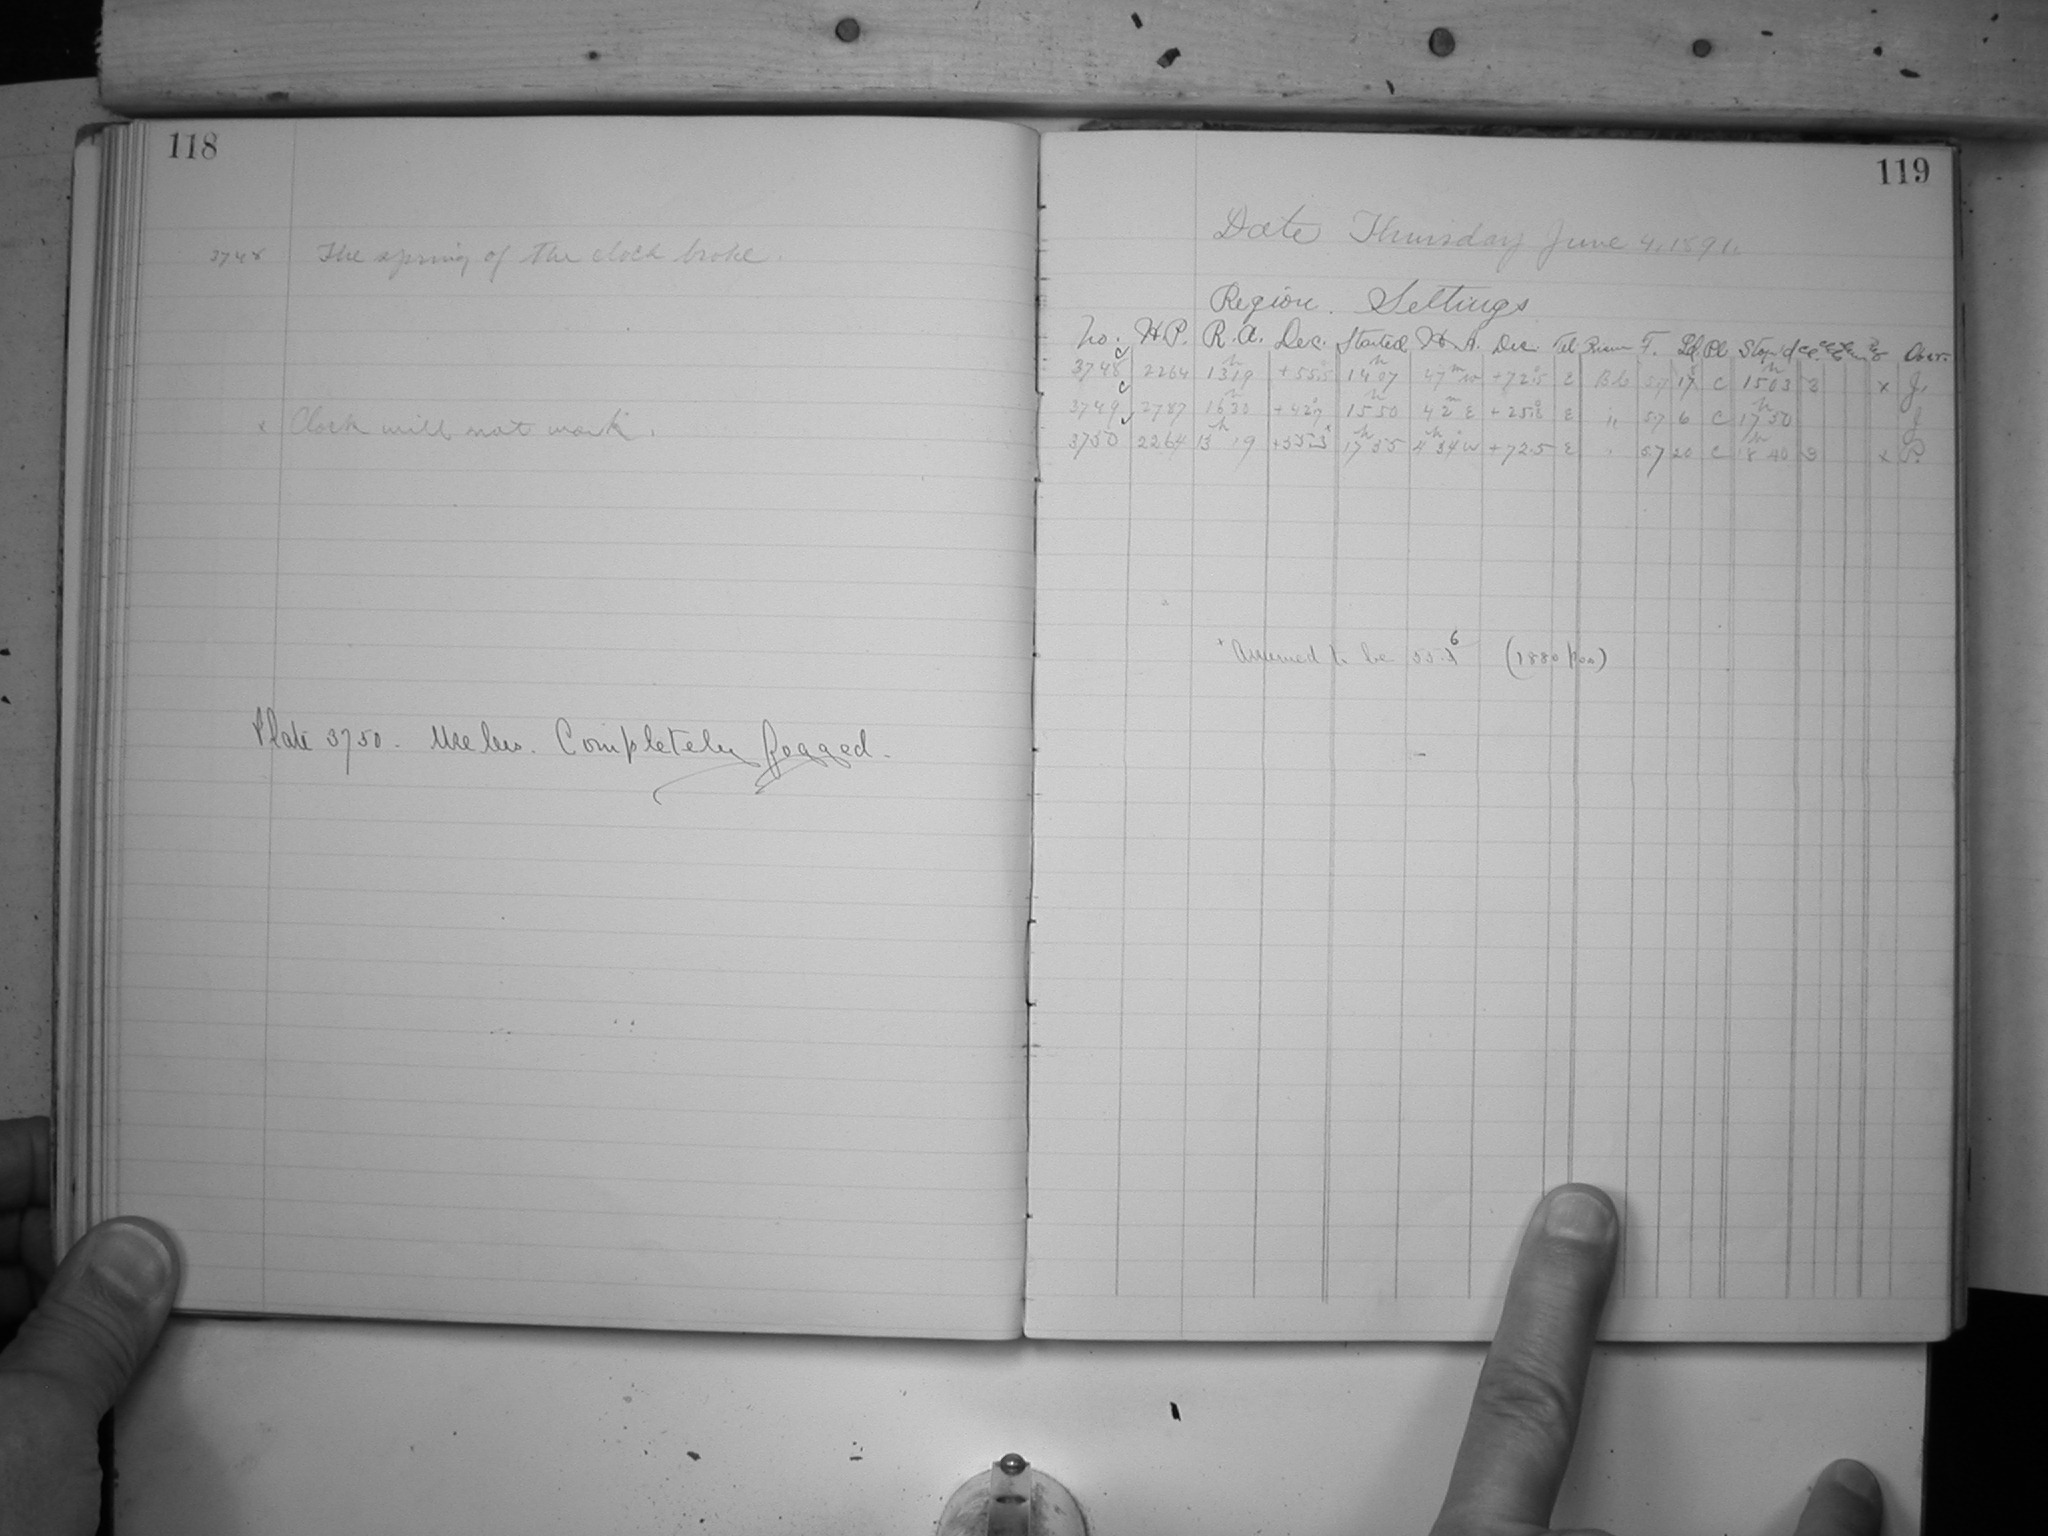 118
3748 The spring of the clock broke.
x Clock will not work.
Plate 3750. Useless. Completely fogged.
119
Date Thursday June 4, 1891.
Region. Settings
No. H.P. R.A. Dec. Started H.A. Dec. Tel. Prism F. Pl. Stop'd Obser.
3748 2264 13h19 +55.5 14h07 47m w +72.5 E 57 17 C 15h03 3 x J.
3749 2787 16h30 +42.9 15h50 42m E E " 57 6 C 17h50 J
3750 2264 13h 19 17h55 4h34 w +72.5 E " 57 20 C 18h40 3 x P.
+ Assumed to be 55.6 (1880 pos)